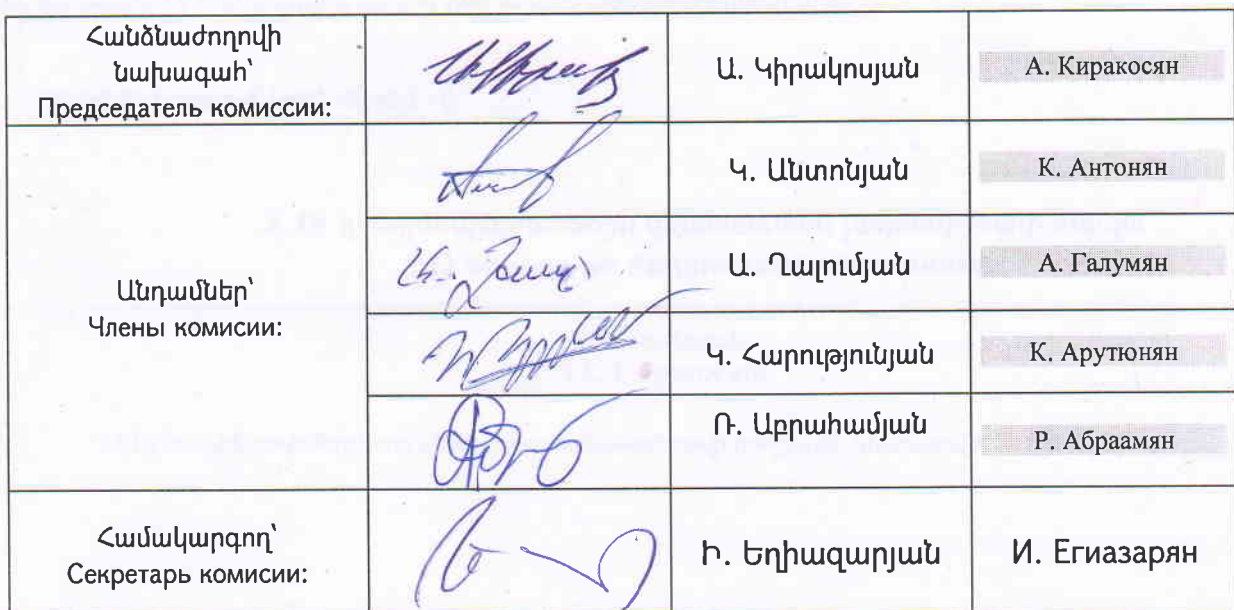 Հանձնաժողովի
նախագահ՝
Председатель комиссии:
Ա. Կիրակոսյան
А. Киракосян
Անդամներ՝
Члены комисии:
Կ. Անտոնյան
К. Антонян
Ա. Ղալումյան
А. Галумян
Կ. Հարությունյան
К. Арутюнян
Ռ. Աբրահամյան
Р. Абраамян
Համակարգող՝
Секретарь комисии:
Ի. Եղիազարյան
И. Егиазарян